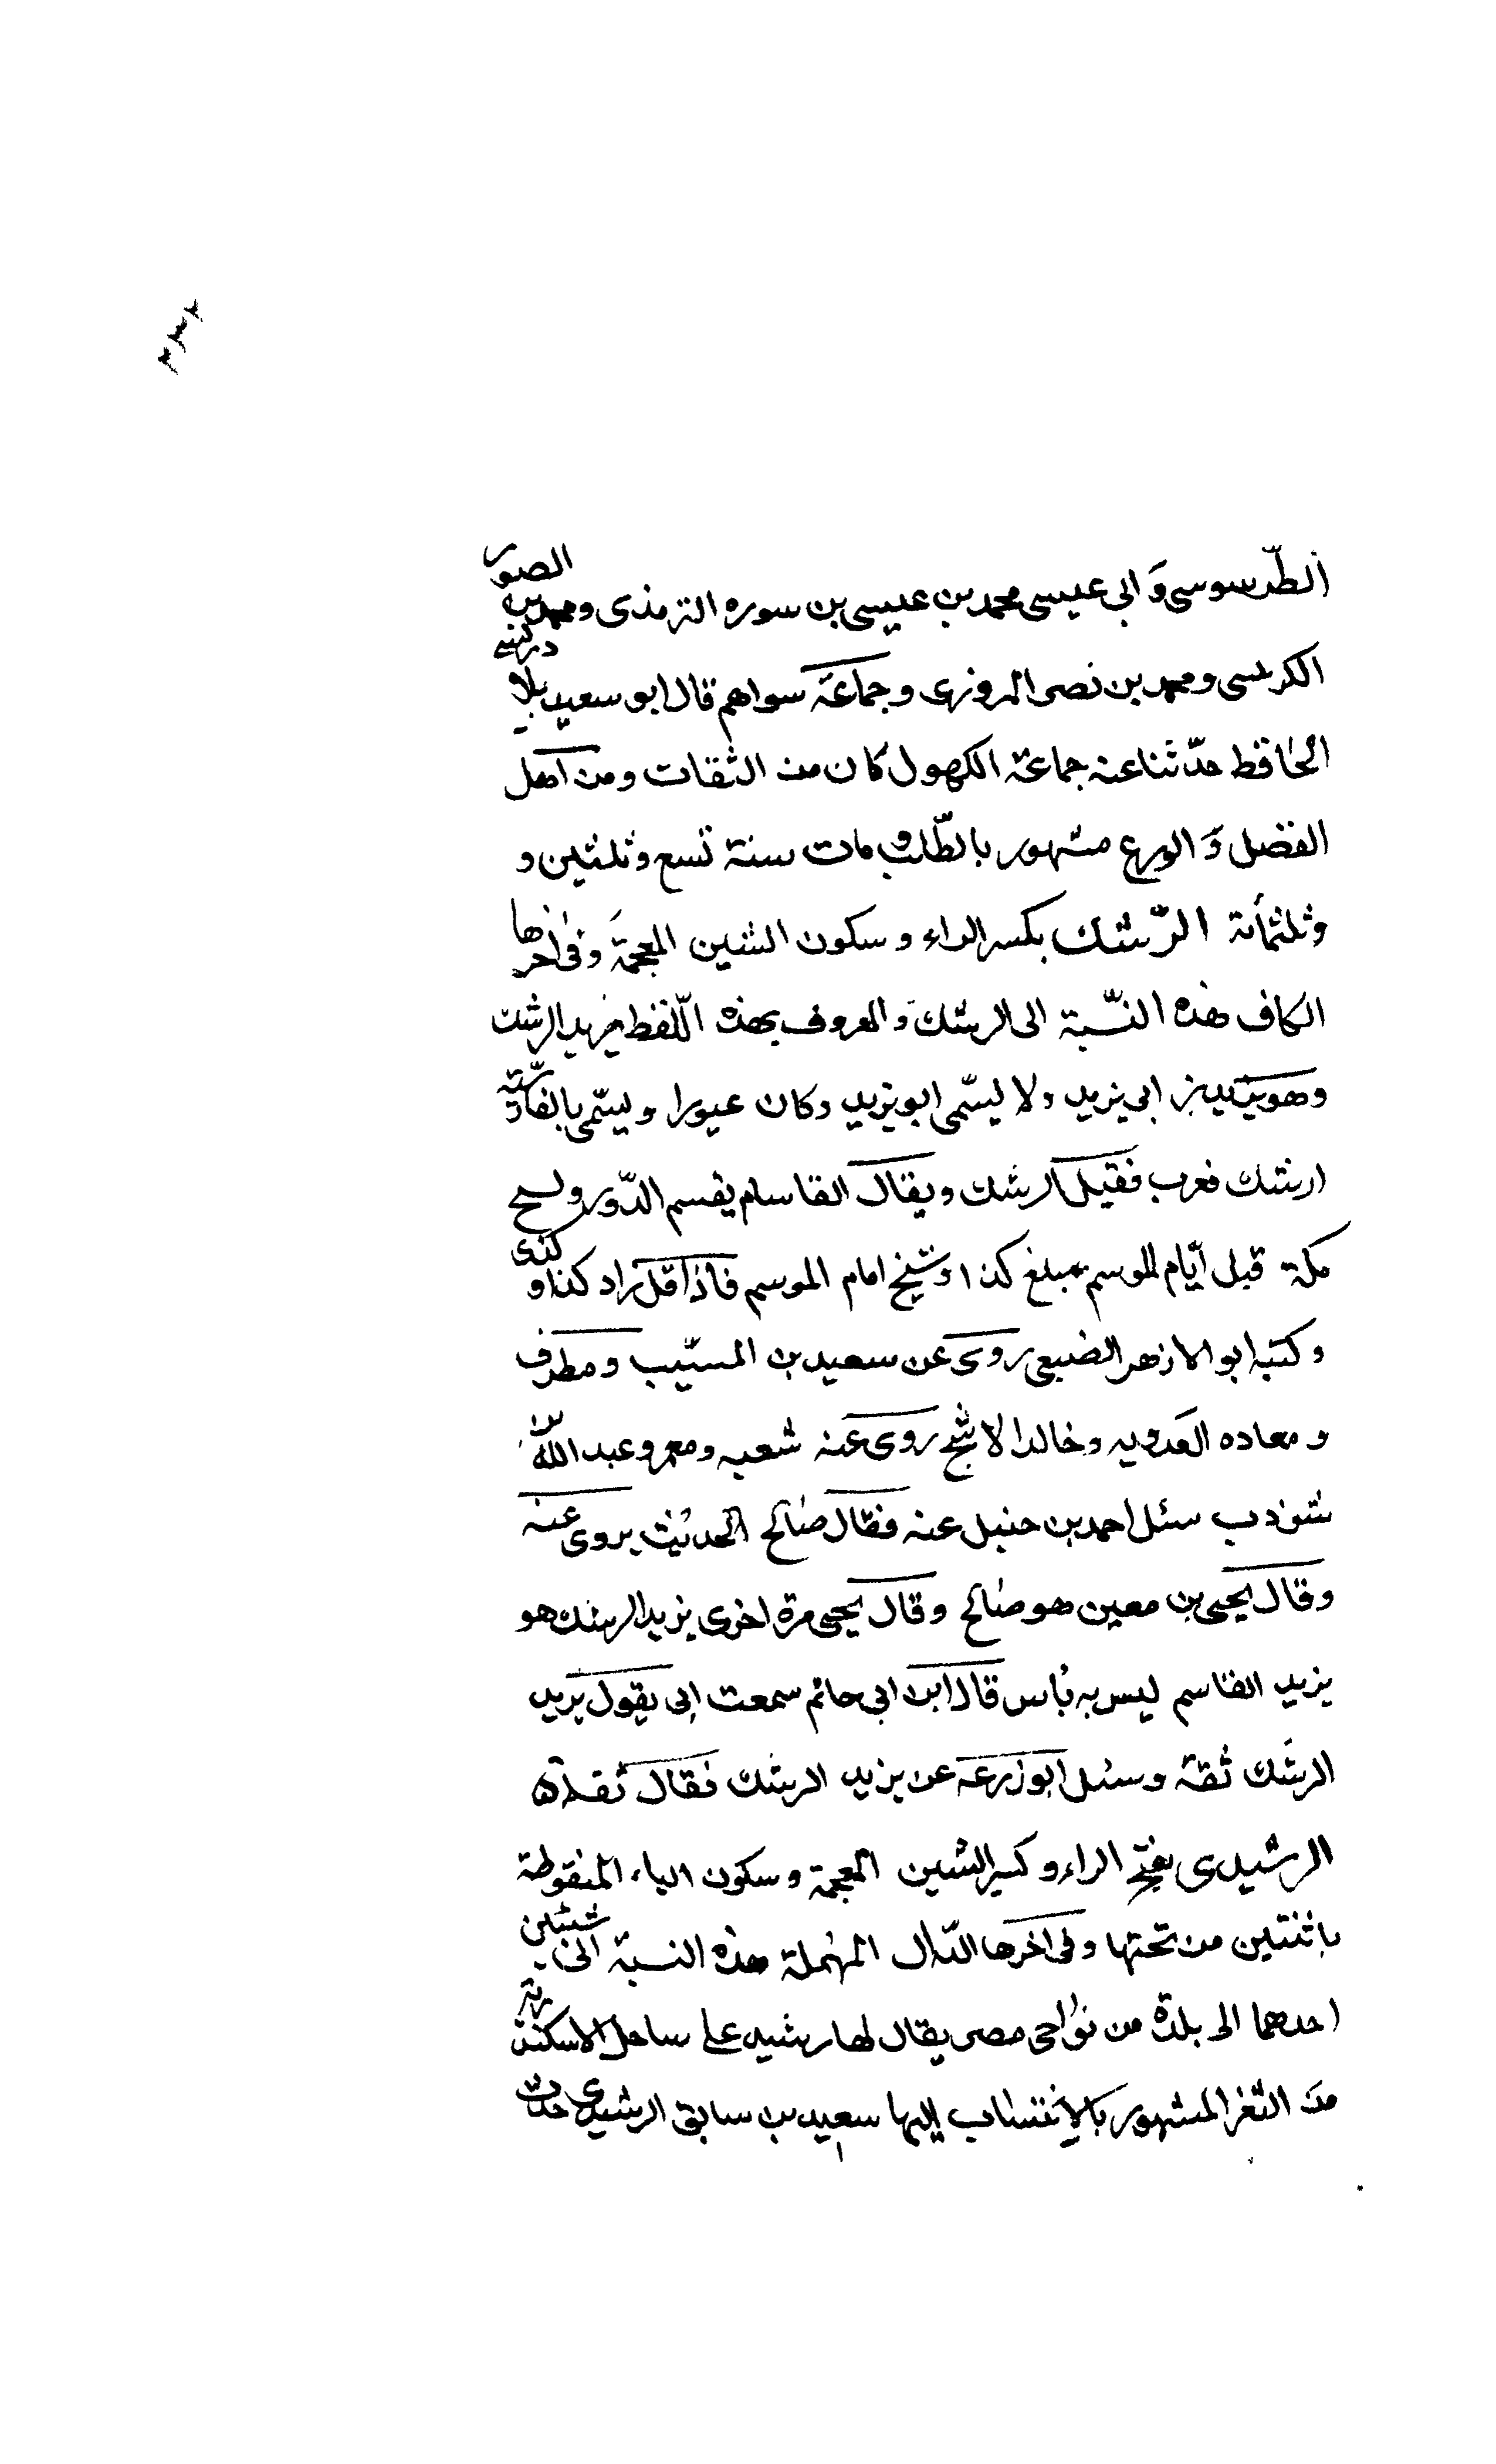 ٢٣٢
الطّرسوسى وَابى عيسى محمد بن عيسى بن سوره الترمذى ومحمد بن الصور
الكرسى ومحمد بن نصر المروزى وجماعة سواهم قال ابو سعيد
الحافظ حدّثنا عنه جماعة الكهول كان من الثقات ومن اهل
الفضل وَالورع مشهور بالطّلب مات سنة تسع وثلثين و
وثلثمأئة الرّشك بكسر الراء وسكون الشين المعجمة وَفى اخرها
الكاف هذه النّسبة الى الرشك وَالمعروف بهذه اللّفظ يزيد الرشك
وهو يزيد بن ابى يزيد ولا يسّمى ابو يزيد وكان غيورا ويسّمى بالفارسّية
ارشك فعرب فقيل الرشك ويقال القاسام يقسم الدّور ولسح
مكة قبل ايّام الموسم مبلغ كذا وَشيخ امام الموسم فاذا قل زاد كذا و كذى
وكنيه ابو الازهر الضبعى روى عن سعيد بن المسيّب ومطرف
ومعاده العدويه وخالد الاشج روى عنه شعبه ومعمر وعبد اللّه بن
شوذب سئل احمد بن حنبل عنه فقال صالح الحديث يروى عنه
وقال يحيى بن معين هو صالح وقال يحيى مرة اخرى يزيد الرشك هو
يزيد القاسم ليس به بأس قال ابن ابى حاتم سمعت ابى يقول يزيد
الرشك ثقة وسئل ابو زرعه عن يزيد الرشك فقال ثقة ۵
الرشيدى بفتح الراء وكسر الشين المعجمة وسكون الياء المنقوطة
باثنتين من تحتها وفى اخرها الدّال المهملة هذه النسبة الى شيئين
احدهما الى بلدة من نواحى مصر يقال لها رشيد على ساحل الاسكندرية
من الثغر المشهور بالانتساب اليها سعيد بن سابق الرشيدى حدث